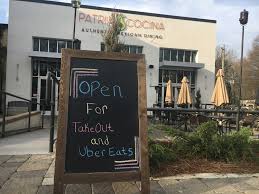 PATRIA COCINA
AUTHENTIC MEXICAN DINING
OPEN
For
TakeOut
and
Uber Eats